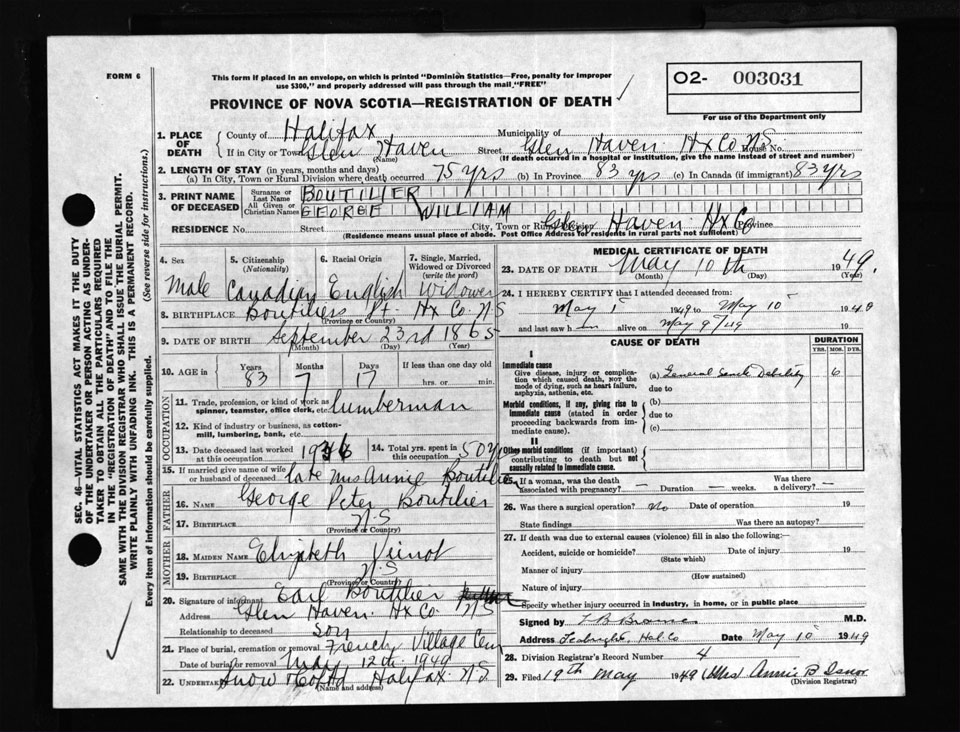 FORM 6
This form if placed in an envelope, on which is printed "Dominion Statistics—Free, penalty for improper
use $300," and properly addressed will pass through the mail "FREE"
O2- 003031
For use of the Department only
PROVINCE OF NOVA SCOTIA—REGISTRATION OF DEATH
SEC. 46—VITAL STATISTICS ACT MAKES IT THE DUTY
OF THE UNDERTAKER OR PERSON ACTING AS UNDER-
TAKER TO OBTAIN ALL THE PARTICULARS REQUIRED
IN THE "REGISTRATION OF DEATH" AND TO FILE THE
SAME WITH THE DIVISION REGISTRAR WHO SHALL ISSUE THE BURIAL PERMIT.
WRITE PLAINLY WITH UNFADING INK. THIS IS A PERMANENT RECORD.
Every item of information should be carefully supplied. (See reverse side for instructions.)
1. PLACE OF DEATH County of Halifax Municipality of
If in City or Town Glen Haven Street Glen Haven Hx Co N.S. House No.
(Name) (If death occurred in a hospital or institution, give the name instead of street and number)
2. LENGTH OF STAY (in years, months and days)
(a) In City, Town or Rural Division where death occurred 75 yrs (b) In Province 83 yrs (c) In Canada (if immigrant) 83 yrs
3. PRINT NAME OF DECEASED Surname or Last Name BOUTILIER
All Given or Christian Names GEORGE WILLIAM
RESIDENCE No. Street City, Town or Rural Division Glen Haven Hx Co Province
(Residence means usual place of abode. Post Office Address for residents in rural parts not sufficient)
4. Sex 5. Citizenship (Nationality) 6. Racial Origin 7. Single, Married, Widowed or Divorced (write the word)
Male Canadian English Widower
8. BIRTHPLACE Boutiliers Pt. Hx Co. N S
(Province or Country)
9. DATE OF BIRTH September 23rd 1865
(Month) (Day) (Year)
10. AGE in Years Months Days If less than one day old
83 7 17 hrs. or min.
OCCUPATION
11. Trade, profession, or kind of work as spinner, teamster, office clerk, etc. lumberman
12. Kind of industry or business, as cotton-mill, lumbering, bank, etc.
13. Date deceased last worked at this occupation 1936 14. Total yrs. spent in this occupation 50 yrs
15. If married give name of wife or husband of deceased late Mrs Annie Boutilier
FATHER
16. NAME George Peter Boutilier
17. BIRTHPLACE N.S
(Province or Country)
MOTHER
18. MAIDEN NAME Elizabeth Vienot
19. BIRTHPLACE N.S
(Province or Country)
20. Signature of informant Earl Boutilier
Address Glen Haven Hx Co N S
Relationship to deceased Son
21. Place of burial, cremation or removal French Village Cem
Date of burial or removal May 12th 1949
22. UNDERTAKER Snow & Co Ltd Halifax N.S.
(Name and address)
MEDICAL CERTIFICATE OF DEATH
23. DATE OF DEATH May 10th 1949.
(Month) (Day) (Year)
24. I HEREBY CERTIFY that I attended deceased from:
May 1 1949 to May 10 1949
and last saw h im alive on May 9/49 19
CAUSE OF DEATH DURATION
YRS. MOS. DYS.
I
Immediate cause
Give disease, injury or complication which caused death, NOT the mode of dying, such as heart failure, asphyxia, asthenia, etc.
(a) General Senile Debility 6
due to
Morbid conditions, if any, giving rise to immediate cause (stated in order proceeding backwards from immediate cause).
(b)
due to
(c)
II
Other morbid conditions (if important) contributing to death but not causally related to immediate cause.
25. If a woman, was the death associated with pregnancy? — Duration — weeks. Was there a delivery? —
26. Was there a surgical operation? No Date of operation 19
State findings Was there an autopsy?
27. If death was due to external causes (violence) fill in also the following:—
Accident, suicide or homicide? Date of injury 19
(State which)
Manner of injury
(How sustained)
Nature of injury
Specify whether injury occurred in industry, in home, or in public place
Signed by M.D.
Address Seabright, Hal. Co Date May 10 1949
28. Division Registrar's Record Number 4
29. Filed 19th May 1949 Mrs Annie B
(Division Registrar)